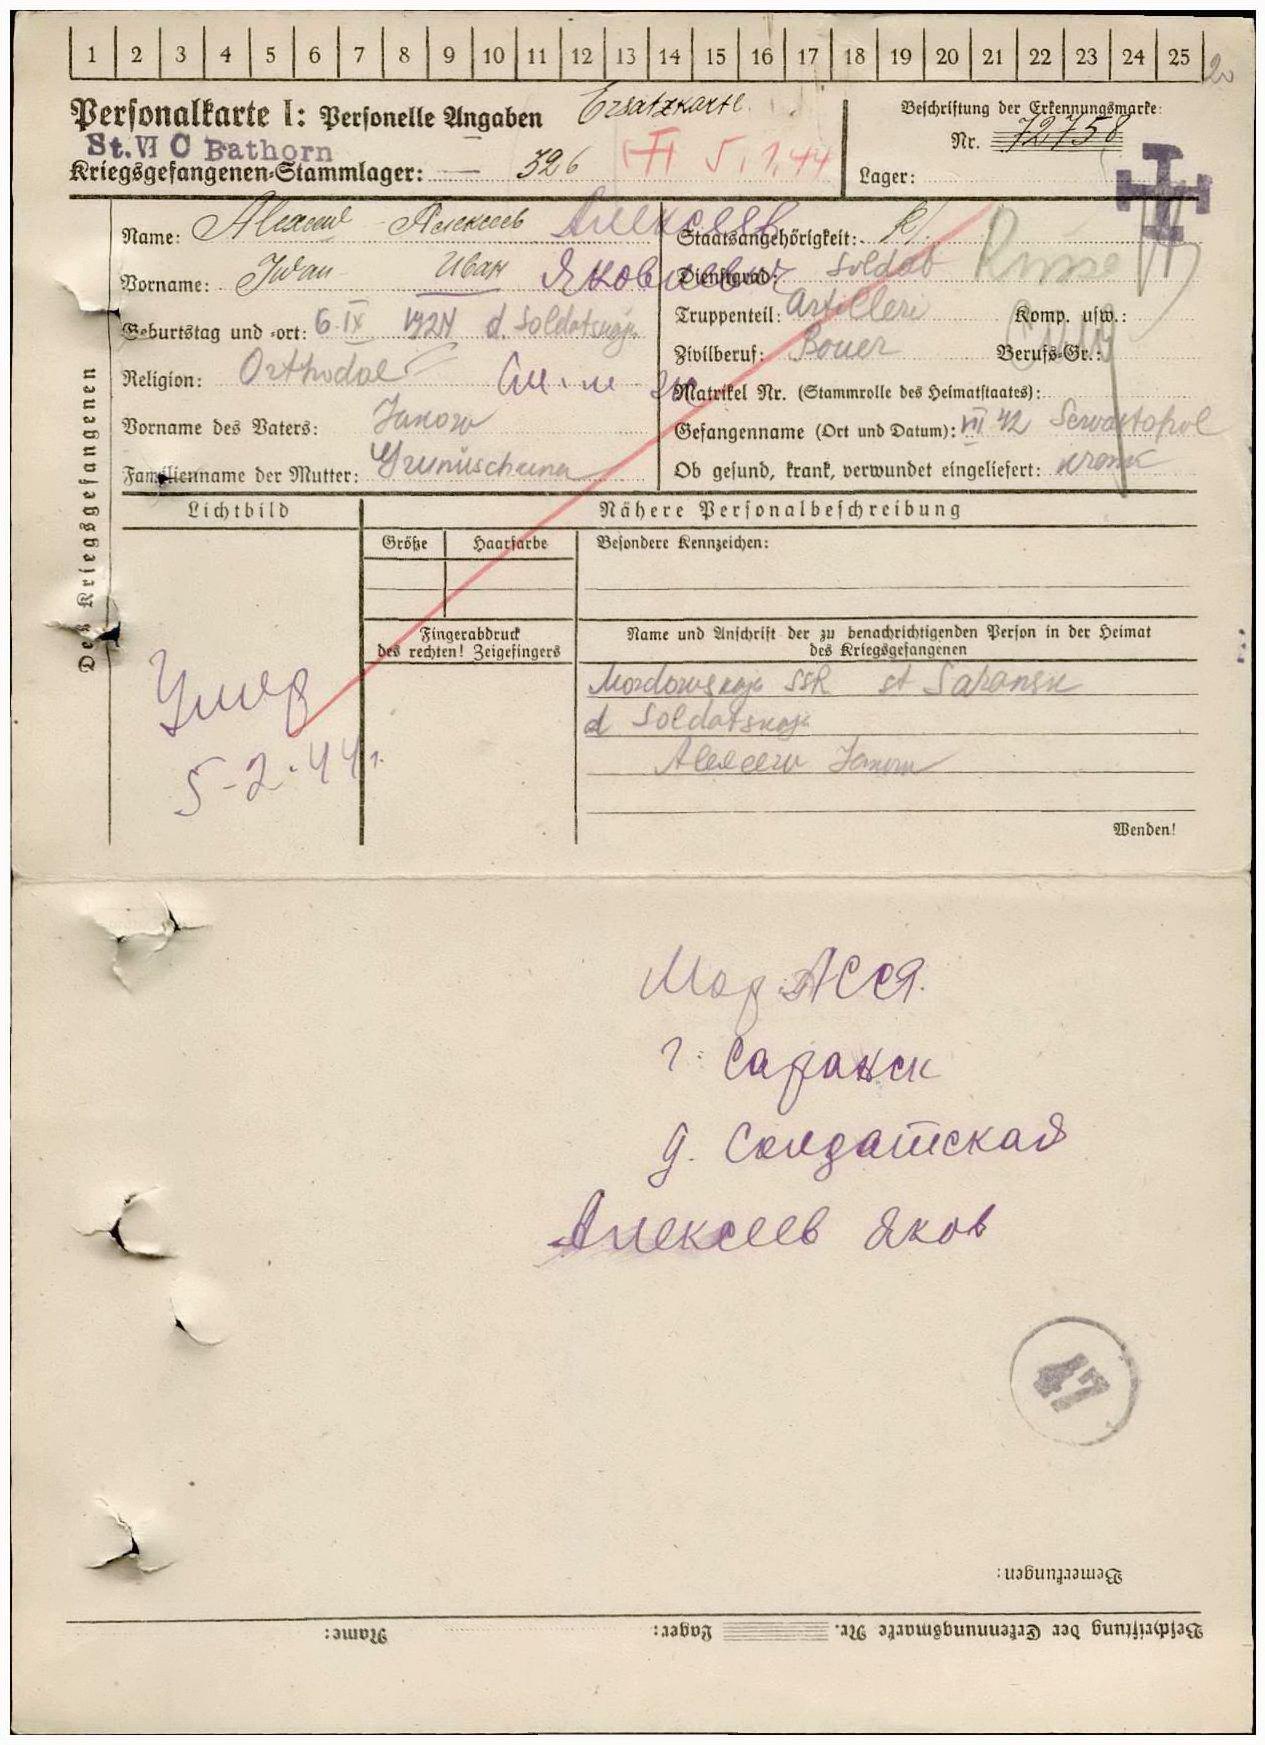 1 2 3 4 5 6 7 8 9 10 11 12 13 14 15 16 17 18 19 20 21 22 23 24 25
Personalkarte I: Personelle Angaben Ersatzkarte
Beschriftung der Erkennungsmarke:
Nr. 72758
St. VI C Bathorn
Kriegsgefangenen-Stammlager: 326 5.1.44
Lager:
Des Kriegsgefangenen
Name: Алексеев Алексеев
Staatsangehörigkeit: Russe
Vorname: Iwan Иван Яковлевич
Dienstgrad: Soldat
Geburtstag und -ort: 6 IX 1924 d. Soldatskaja
Truppenteil: Artilleri Komp. usw.:
Zivilberuf: Bouer Berufs-Gr.:
Religion: Orthodal
Matrikel Nr. (Stammrolle des Heimatstaates):
Vorname des Vaters: Jakow
Gefangenname (Ort und Datum): VII 42 Sewastopol
Familienname der Mutter:
Ob gesund, krank, verwundet eingeliefert: krank
Lichtbild
Nähere Personalbeschreibung
Größe Haarfarbe Besondere Kennzeichen:
Fingerabdruck
des rechten! Zeigefingers
Name und Anschrift der zu benachrichtigenden Person in der Heimat
des Kriegsgefangenen
Mordowskaja SSR st Saransk
d Soldatskaja
Alexeew Jakow
Умер
5-2-44 г.
Wenden!
Мор. АССР.
г. Саранск
д. Солдатская
Алексеев Яков
47
Bemerkungen:
Beschriftung der Erkennungsmarke Nr. Lager: Name: